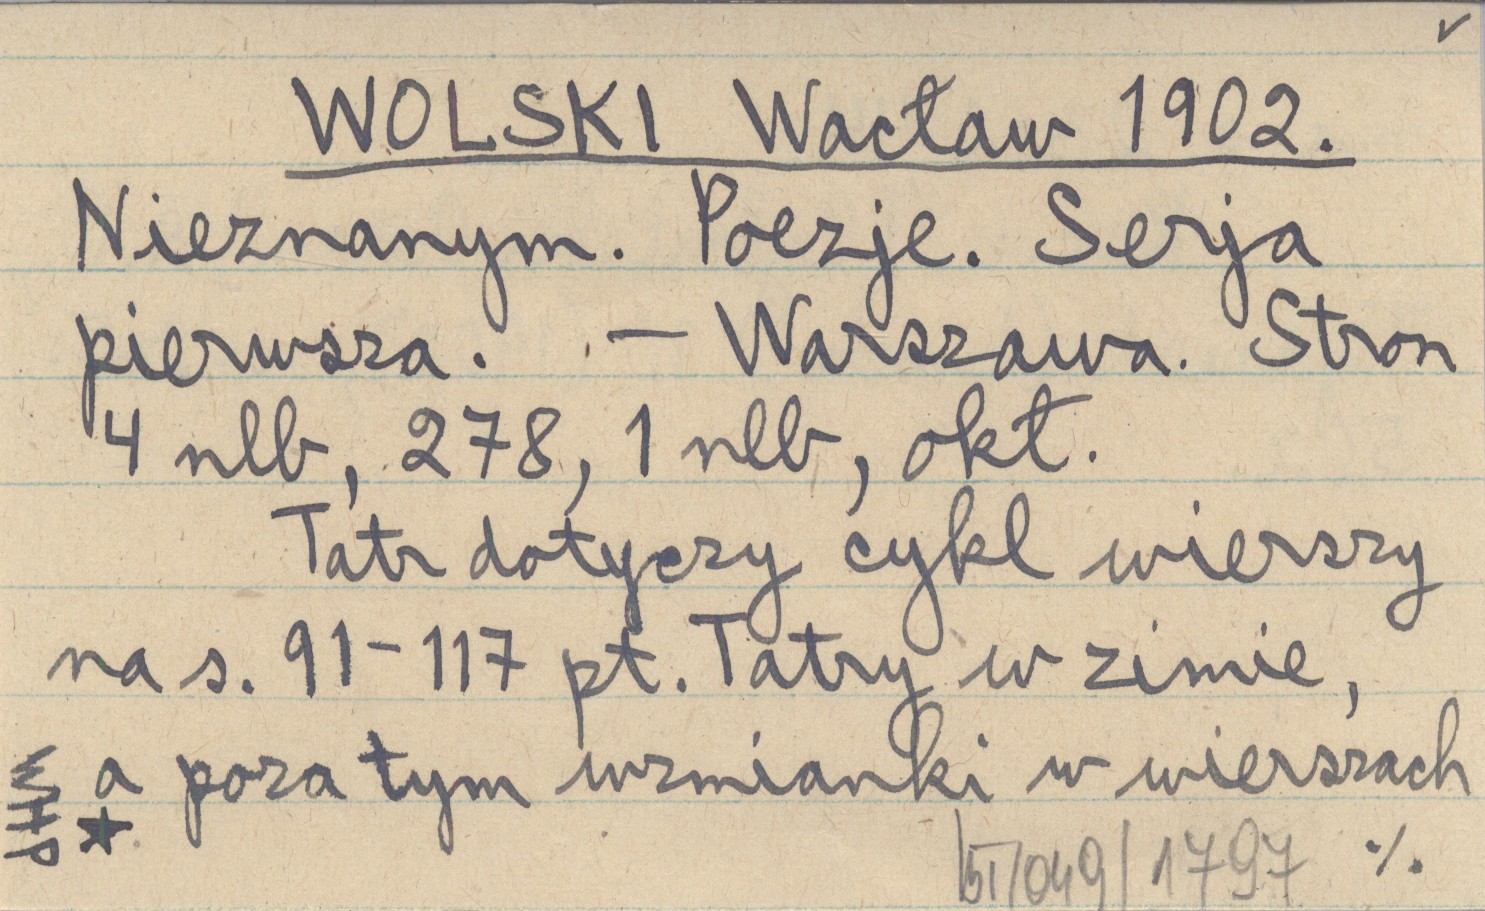 WOLSKI Wacław 1902.
Nieznanym. Poezje. Serja
pierwsza. — Warszawa. Stron
4 nlb, 278, 1 nlb, okł.
Tatr dotyczy cykl wierszy
na s. 91-117 pt. Tatry w zimie,
a poza tym wzmianki w wierszach
WHP
/049/1797 ./.